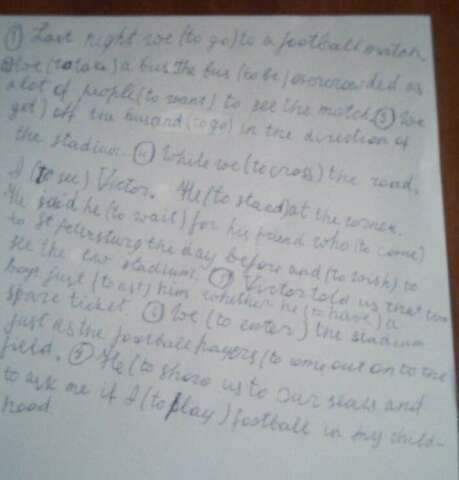 ① Last night we (to go) to a football match
② We (to take) a bus. The bus (to be) overcrowded as
a lot of people (to want) to see the match. ③ We
get) off the bus and (to go) in the direction of
the stadium. ④ While we (to cross) the road,
I (to see) Victor. He (to stand) at the corner.
He said he (to wait) for his friend who (to come)
to St Petersburg the day before and (to wish) to
see the stadium. Victor told us that two
boys just (to ask) him whether he (to have) a
spare ticket. We (to enter) the stadium
just as the football players (to come out on to the
field. He (to show us to our seats and
to ask me if I (to play) football in my child-
hood